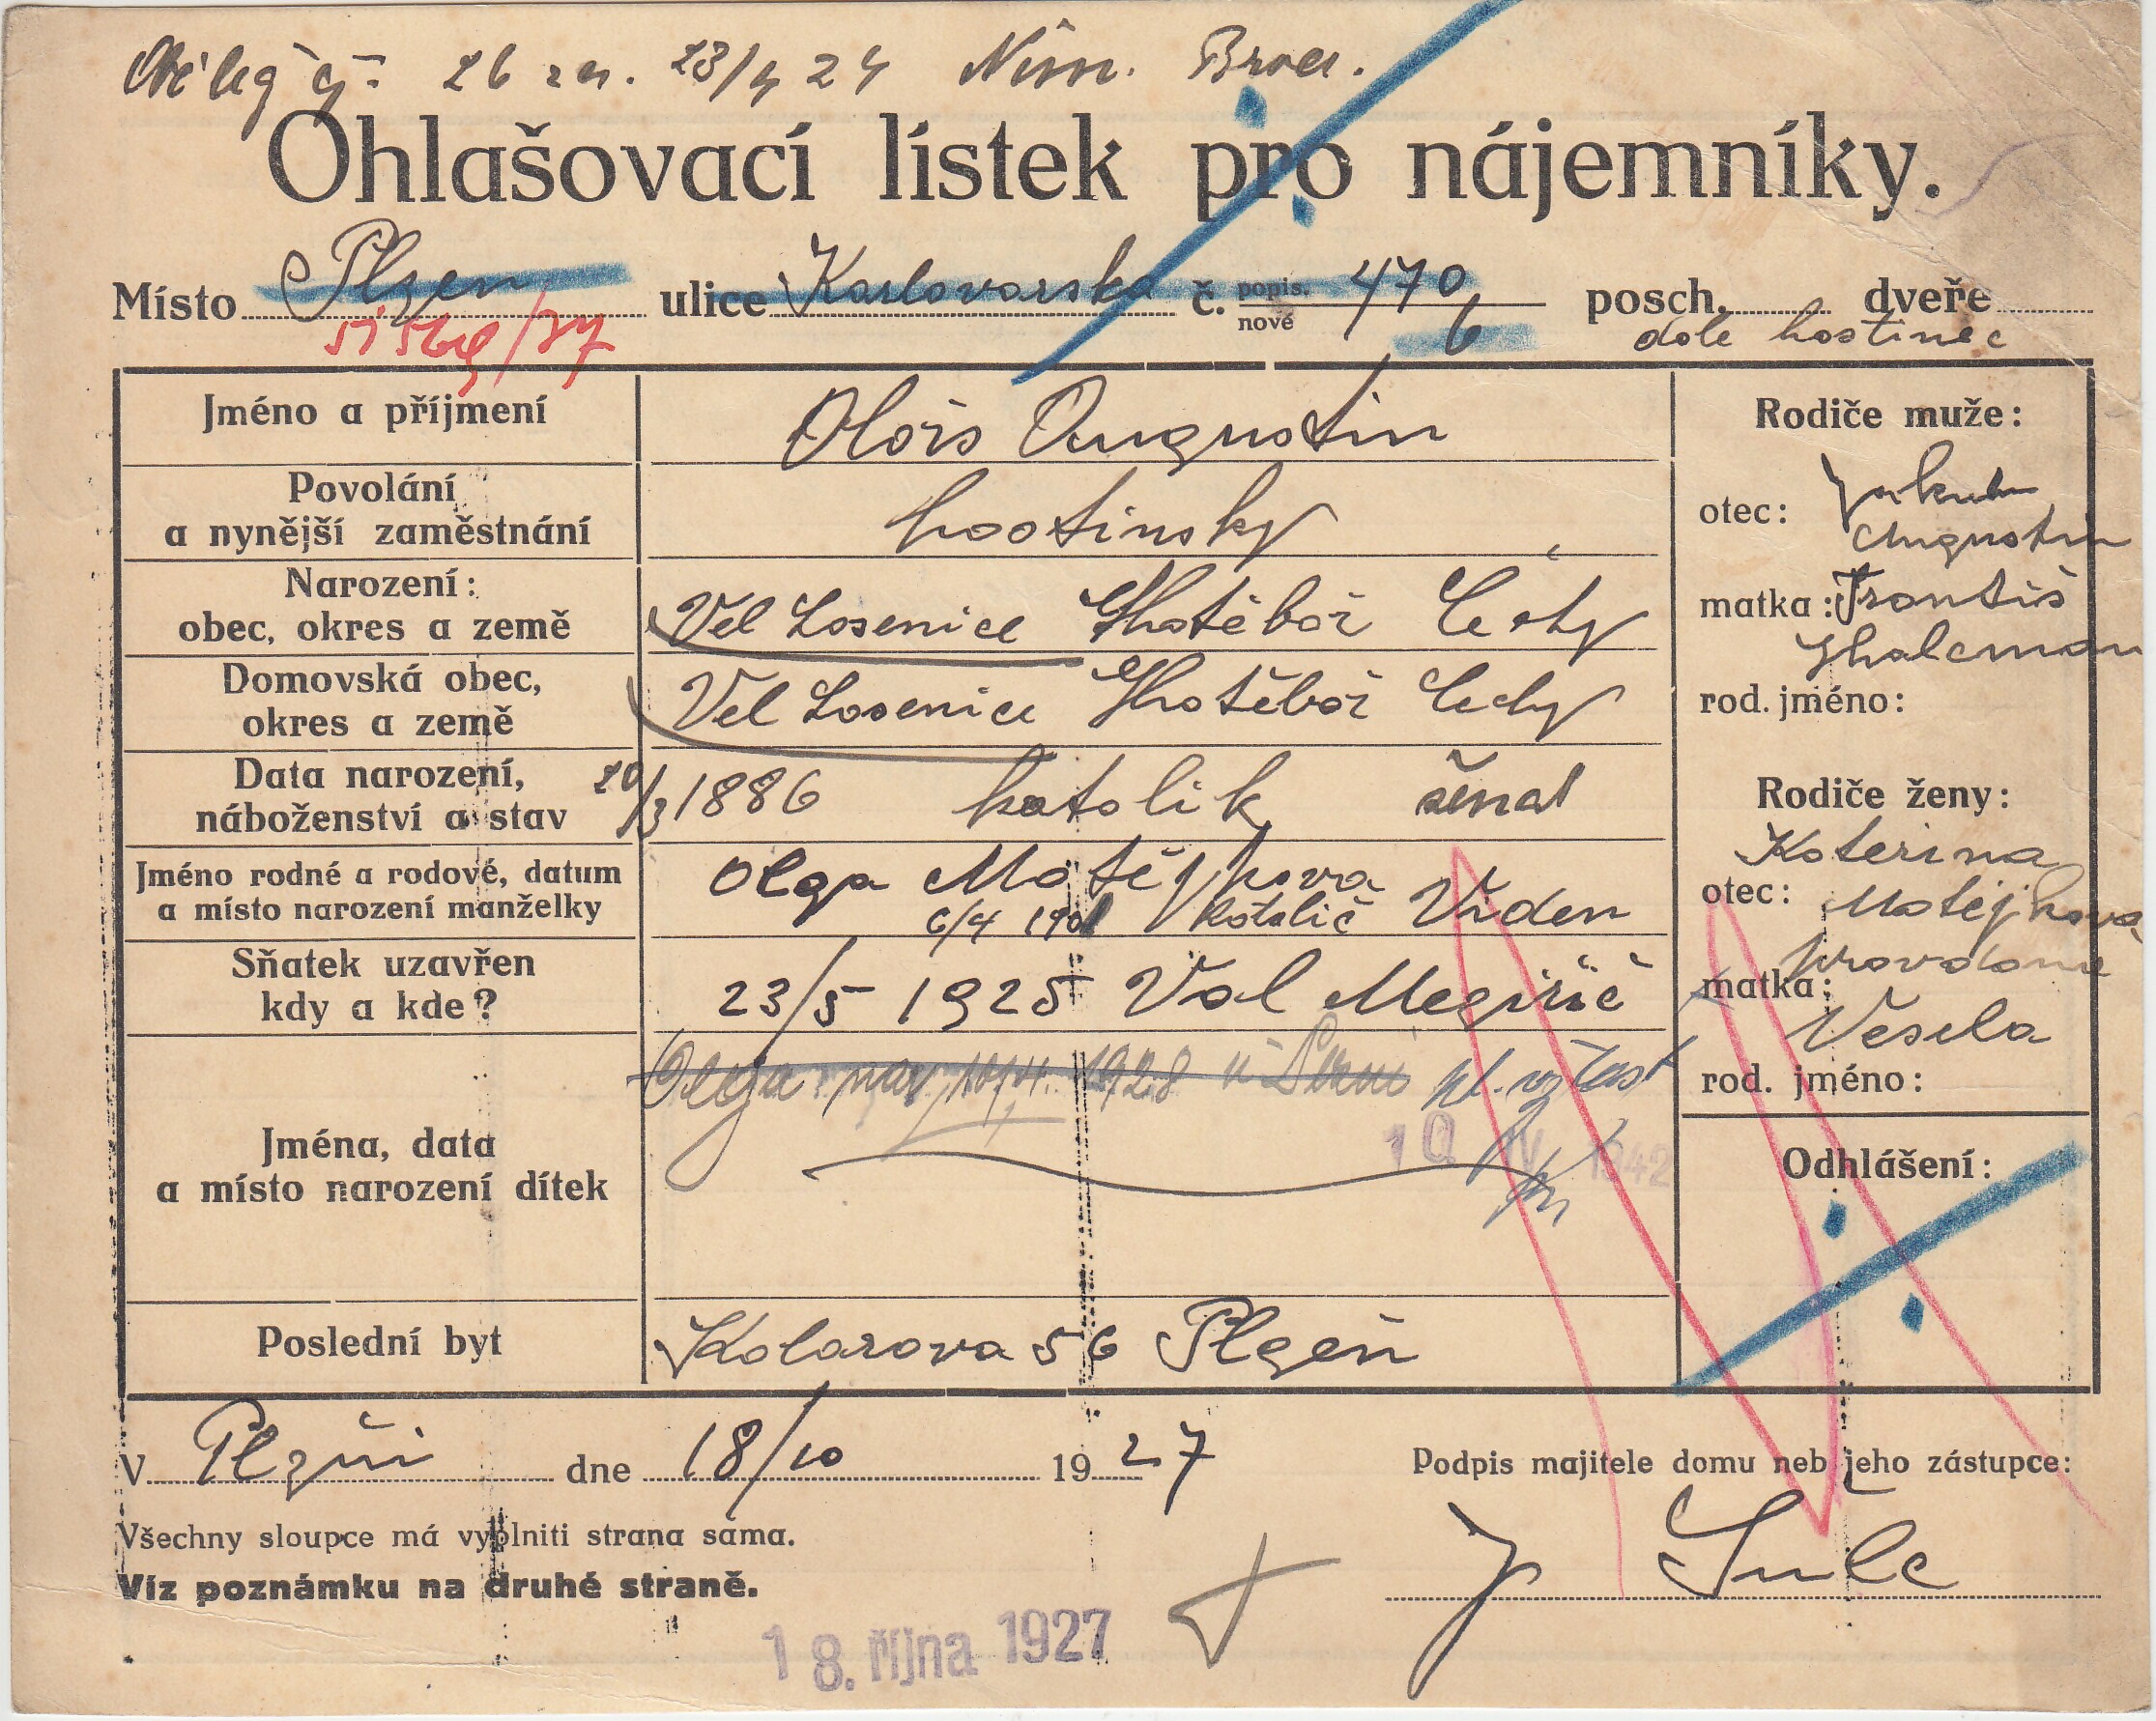 26 23/4 24 Něm. Brod.
Ohlašovací lístek pro nájemníky.
Místo Plzen ulice Karlovarska č. popis. nové 470 6 posch. dveře
dole hostinec
Jméno a příjmení Alois Augustin
Povolání
a nynější zaměstnání hostinsky
Narození:
obec, okres a země Vel Losenice Chotěboř Čechy
Domovská obec,
okres a země Vel Losenice Chotěboř Čechy
Data narození,
náboženství a stav 20/3 1886 katolik ženat
Jméno rodné a rodové, datum
a místo narození manželky Olga Matějkova
6/4 1901 katolič Viden
Sňatek uzavřen
kdy a kde? 23/5 1925 Val Meziřič
Jména, data
a místo narození dítek Olga nar. 1928
10 IV 1942
Poslední byt Kolarova 56 Plzeň
Rodiče muže:
otec: Jakub
Augustin
matka: Františ
rod. jméno:
Rodiče ženy:
Katerina
otec: Matějkova
provdana
matka:
Vesela
rod. jméno:
Odhlášení:
V Plzni dne 18/10 1927
Podpis majitele domu neb jeho zástupce:
Všechny sloupce má vyplniti strana sama.
Víz poznámku na druhé straně.
J Šulc
18. října 1927